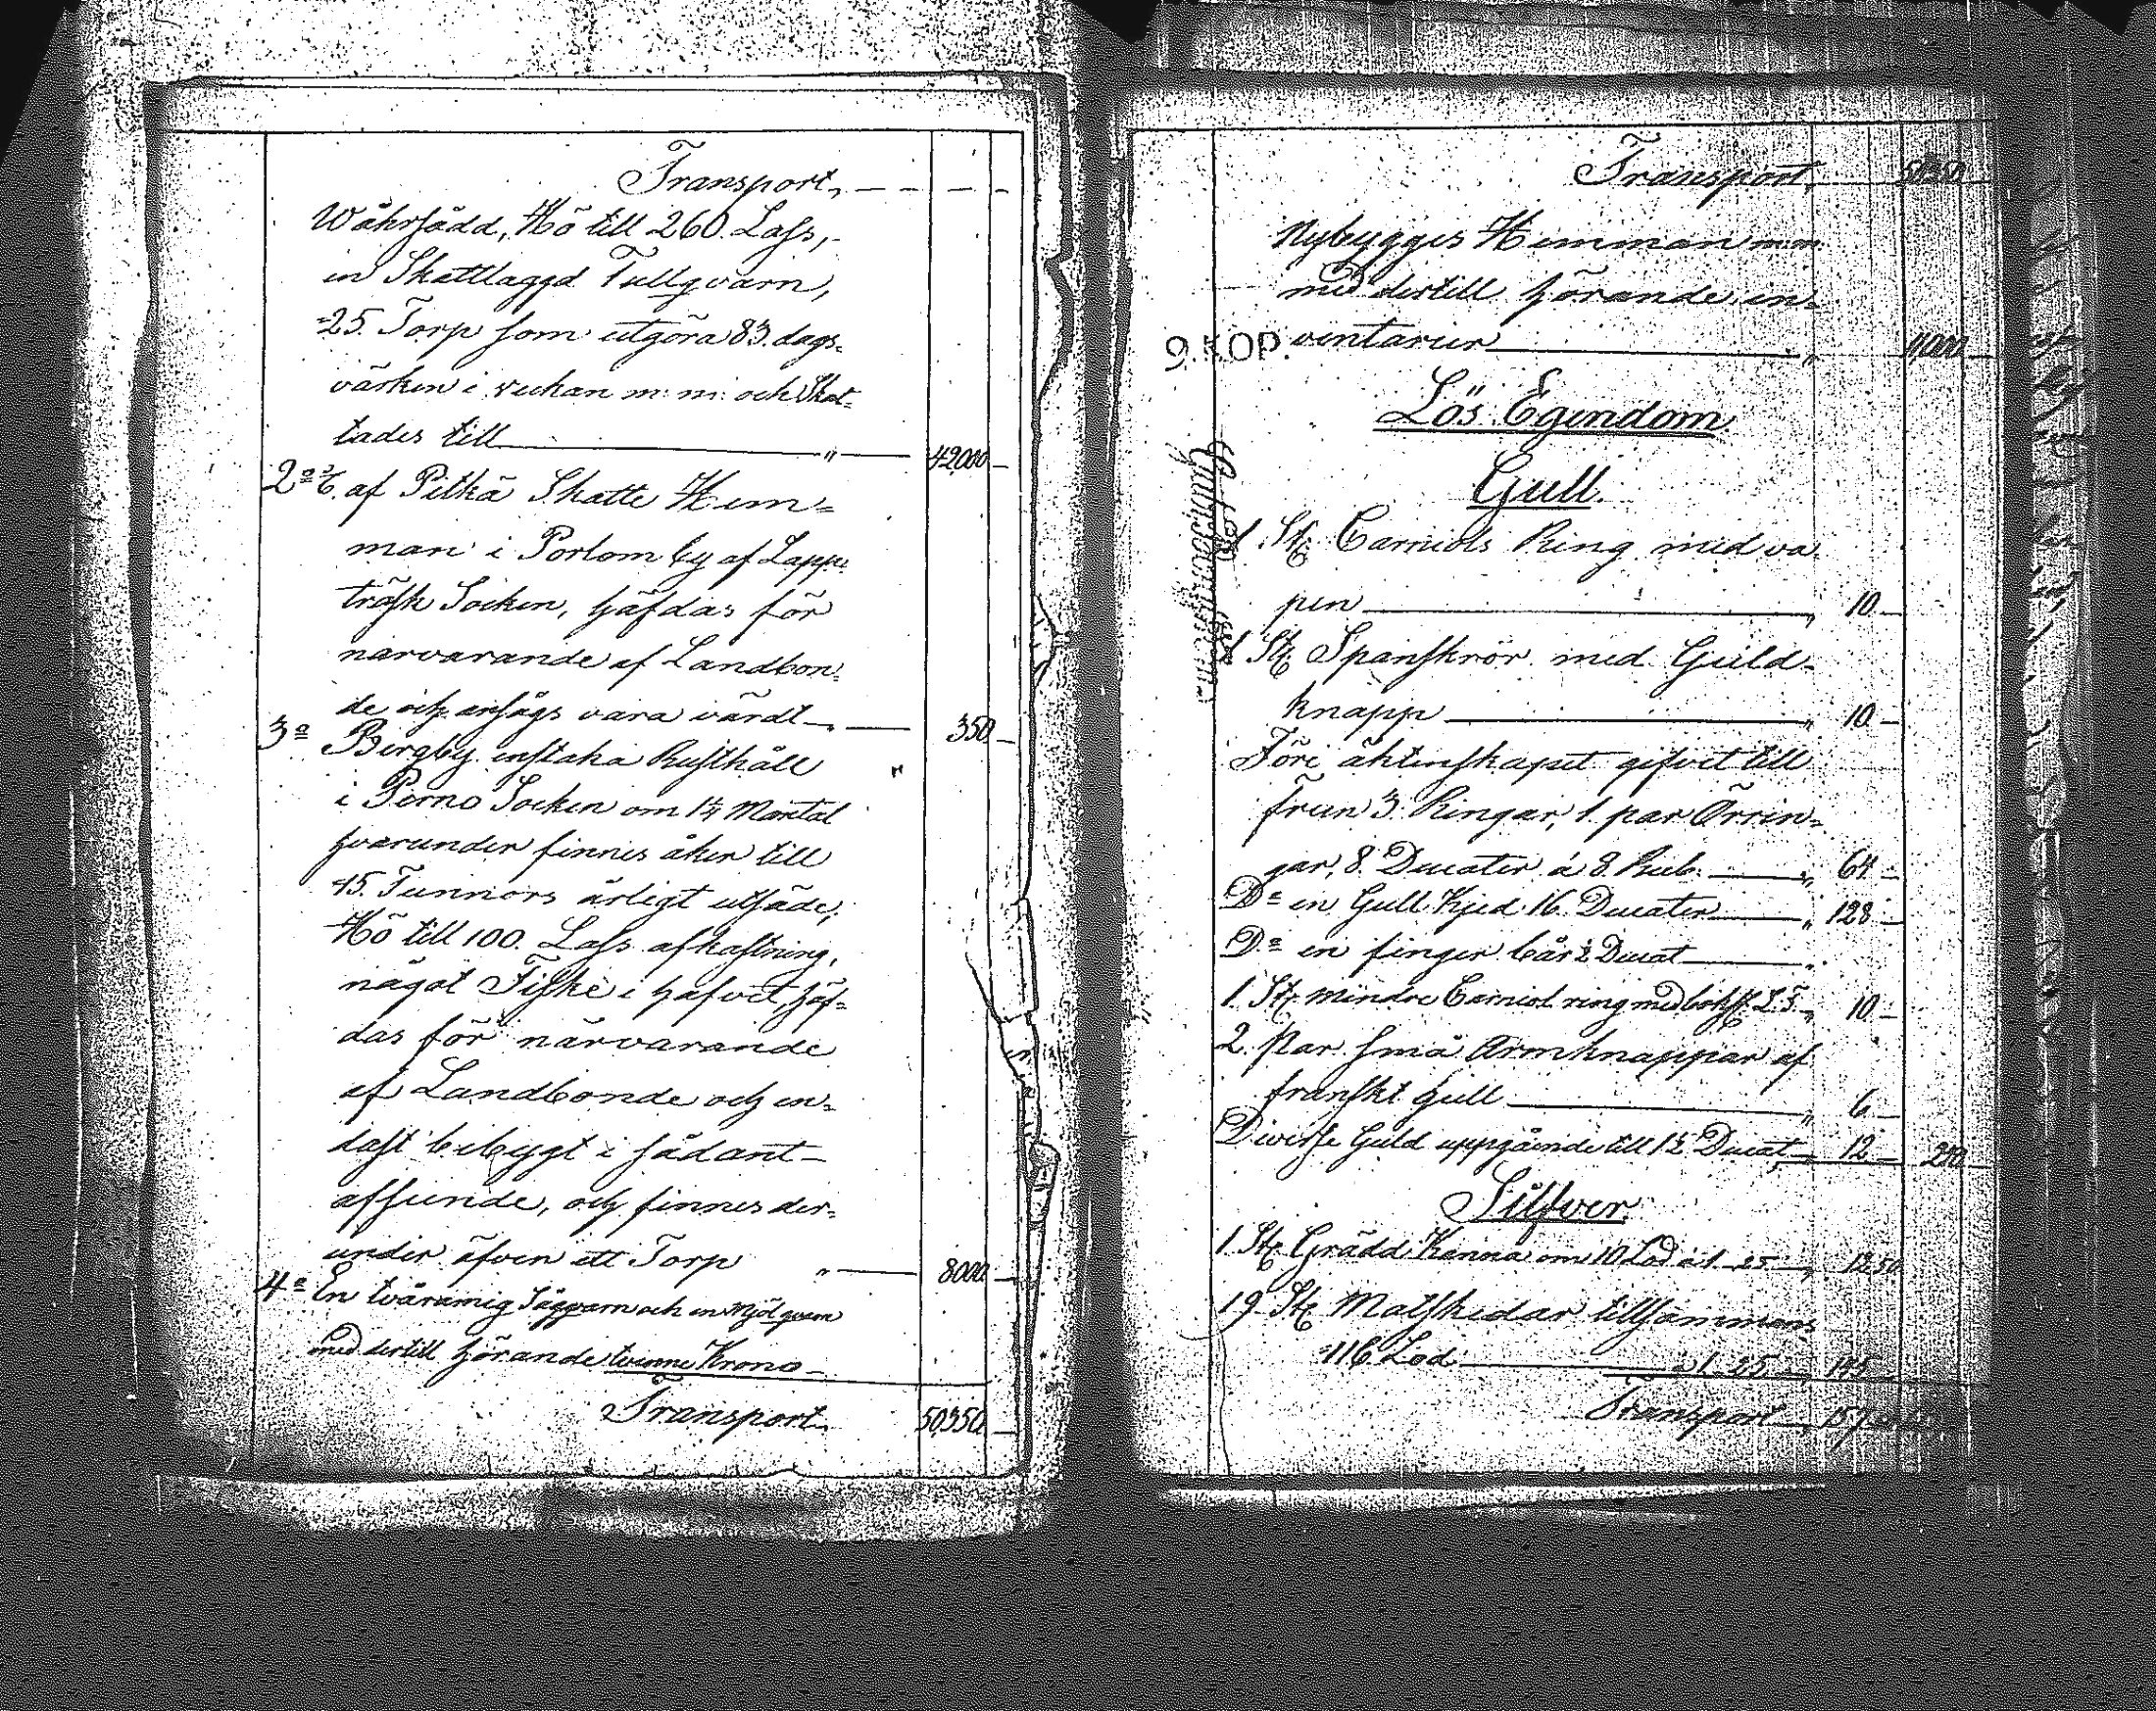 Transport, — — — -
Wåhrsådd, Hö till 260. Lass,
en Skattlaggd Tullqvarn,
25. Torp som utgöra 83. dags-
värken i veckan m: m: och Skat-
tades till — " — 42,000 —
2a af Pilkä Skatte Hem-
man i Porlom by af Lapp-
träsk Socken, häfdas för
närvarande af Landbon-
de och ansågs vara värdt — " — 350 —
3a Bergby enstaka Rusthåll "
i Perno Socken om 1¼ Mantal
hvarunder finnes åker till
45. Tunnors årligt utsäde,
Hö till 100. Lass afkastning,
något Fiske i hafvet, häf-
das för närvarande
af Landbonde och en-
dast bebygt i sådant
afseende, och finnes der-
under äfven ett Torp " — 8000 —
4a En tväramig Sågqvarn och en Mjöl qvarn
med dertill hörande tvenne Krono-
Transport, 50,350. —
Transport, 50,350
Nybygges Hemman m.m.
med dertill hörande in-
9. KOP.
ventarier — " 4,000 —
Lös Egendom
Gull.
1 St. Carniols Ring med va
pen — " 10 —
1 St. Spanskrör med Guld-
knapp — " 10 —
Före äktenskapet gifvet till
frun 3. Ringar, 1. par Örrin-
gar, 8. Ducater á 8. Rub. — " 64 —
Do en Gull Kjed 16. Ducater — " 128 —
Do en finger bår ½ Ducat — "
1. St. mindre Carniol ring med bokst. — " 10 —
2. Par små Armknappar af
franskt gull — " 6 —
Diverse Guld uppgående till 1½ Ducat — " 12 — 240
Silfver.
1 St. Grädd Kanna om 10 Lod à 1 – 25 — " 12.50
19. St. Matskedar tillsammans
116. Lod — à 1 – 25 — " 145
Transport — " 157